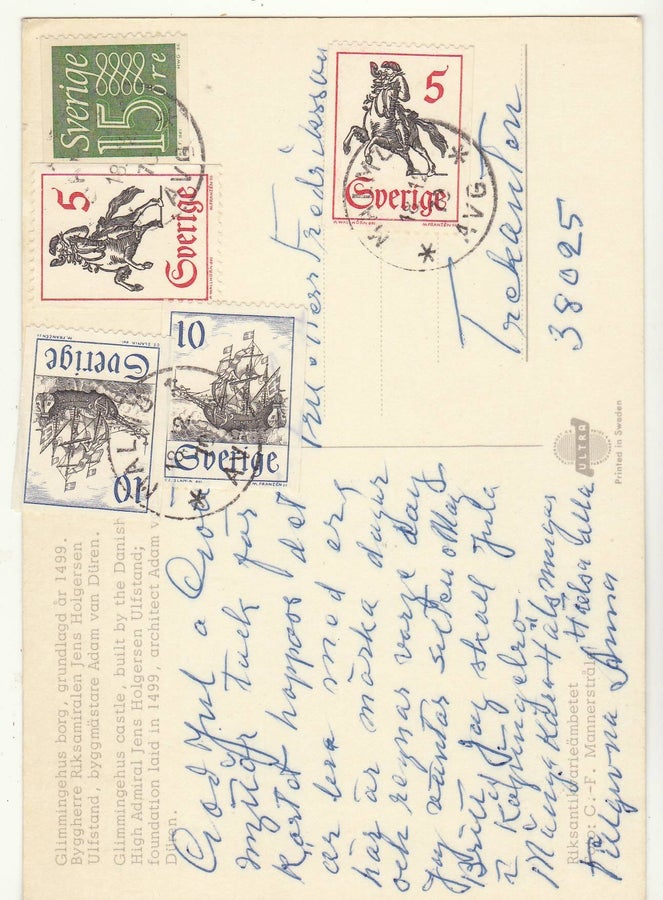 Glimmingehus borg, grundlagd år 1499.
Byggherre Riksamiralen Jens Holgersen
Ulfstand, byggmästare Adam van Düren.
Glimmingehus castle, built by the Danish
High Admiral Jens Holgersen Ulfstand;
foundation laid in 1499, architect Adam v
Düren.
God Jul o God
tack för
kortet hoppas det
är bra med er
här är mörka dagar
och regnar varje dag
Jag väntar
Britt Jag skall Jula
i Köpingebro
Många Kära Hälsningar
Hälsa Alla
Anna
Riksantikvarieämbetet
Foto: C.-F. Mannerstråle
ULTRA
Printed in Sweden
Fredriksson
Trekanten
38025
Sverige
15 öre
5
Sverige
10
Sverige
10
Sverige
5
Sverige
MALMÖ
18.12
70
AVG